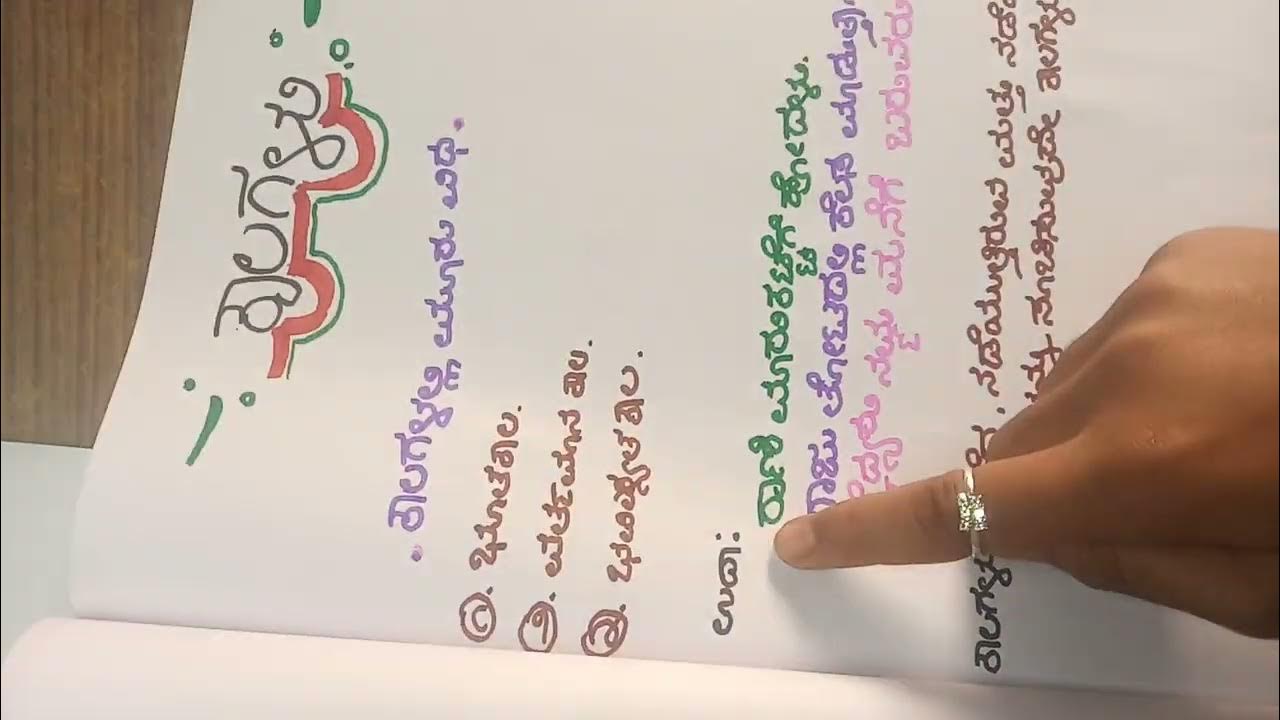 ಕಾಲಗಳು
ಕಾಲಗಳಲ್ಲಿ ಮೂರು ವಿಧ.
೧. ಭೂತಕಾಲ.
೨. ವರ್ತಮಾನ ಕಾಲ.
೩. ಭವಿಷ್ಯತ ಕಾಲ.
ಉದಾ:
ರಾಣಿ ಮಾರುಕಟ್ಟೆಗೆ ಹೋದಳು.
ರಾಜು ತೋಟದಲ್ಲಿ ಕೆಲಸ
ನನ್ನ ಮನೆಗೆ ಬರುವರು
ಕಾಲಗಳು ನಡೆಯುತ್ತಿರುವ ಮತ್ತು
ಸೂಚಿಸುವುದೇ ಕಾಲಗಳು